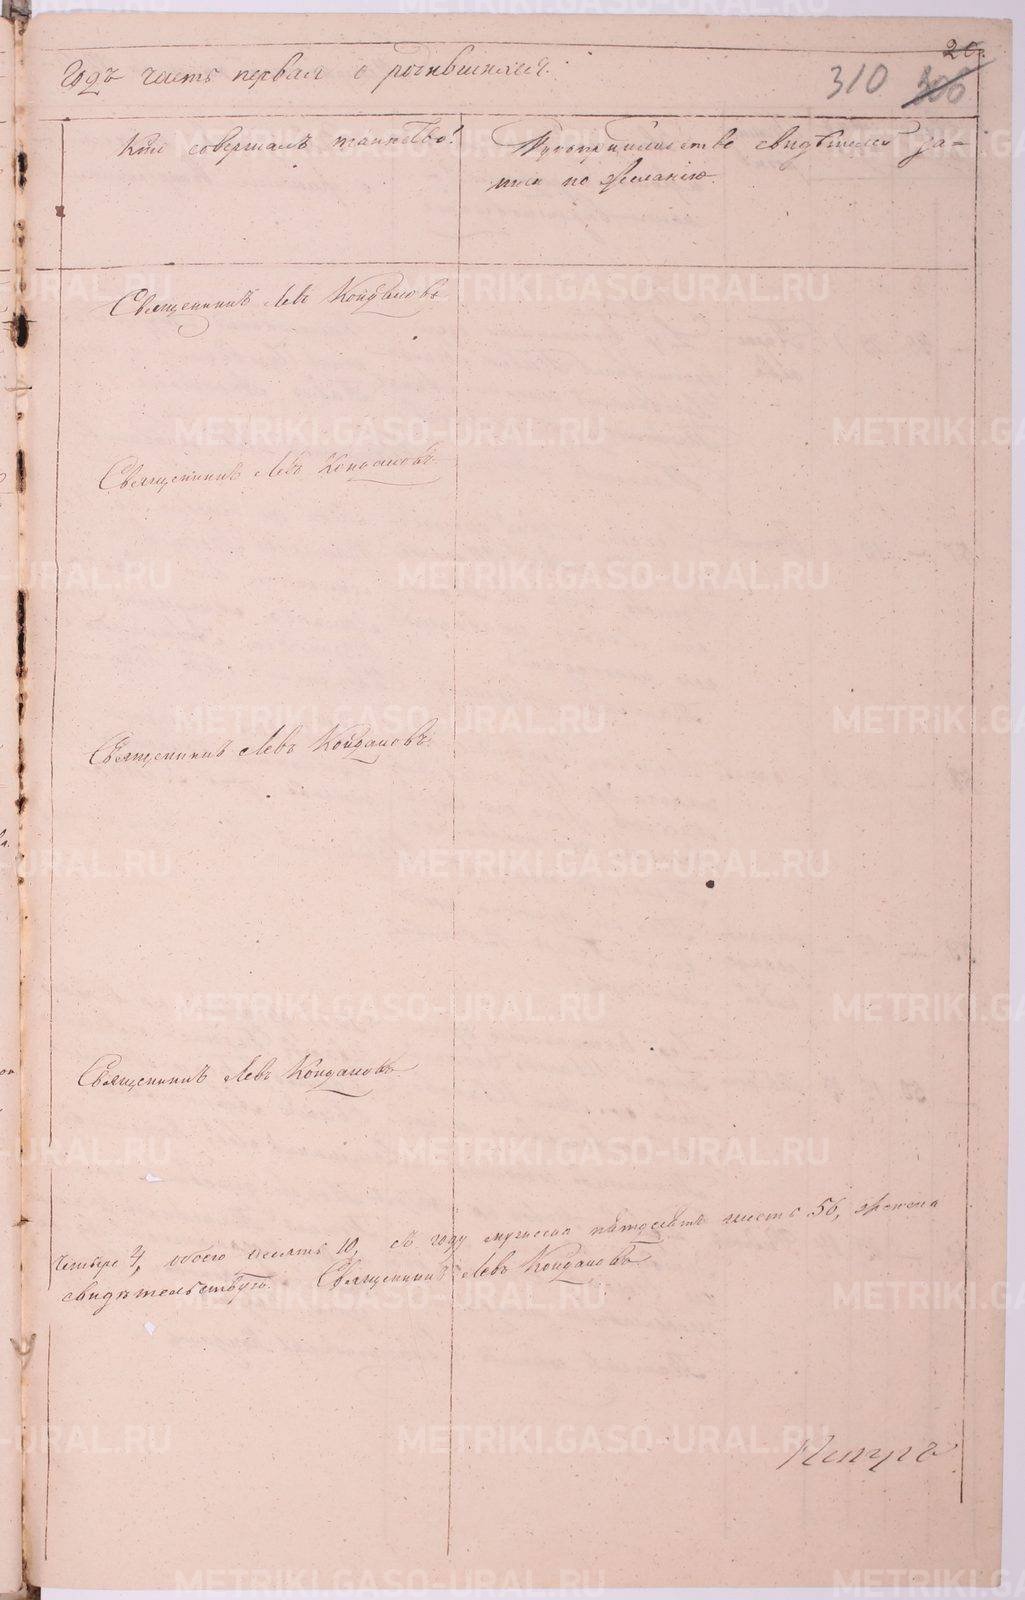 20.
310 306
Годъ часть первая о родившихся.
Кто совершалъ таинство!
Рукоприкладство свидѣтелей за-
писи по желанію.
Священникъ Левъ Кондаковъ
Священникъ Левъ Кондаковъ
Священникъ Левъ Кондаковъ.
Священникъ Левъ Кондаковъ
четыре 4, обоего десять 10, въ году мужеска пятдесятъ шесть 56, женска
свидѣтельствую. Священникъ Левъ Кондаковъ
METRIKI.GASO-URAL.RU